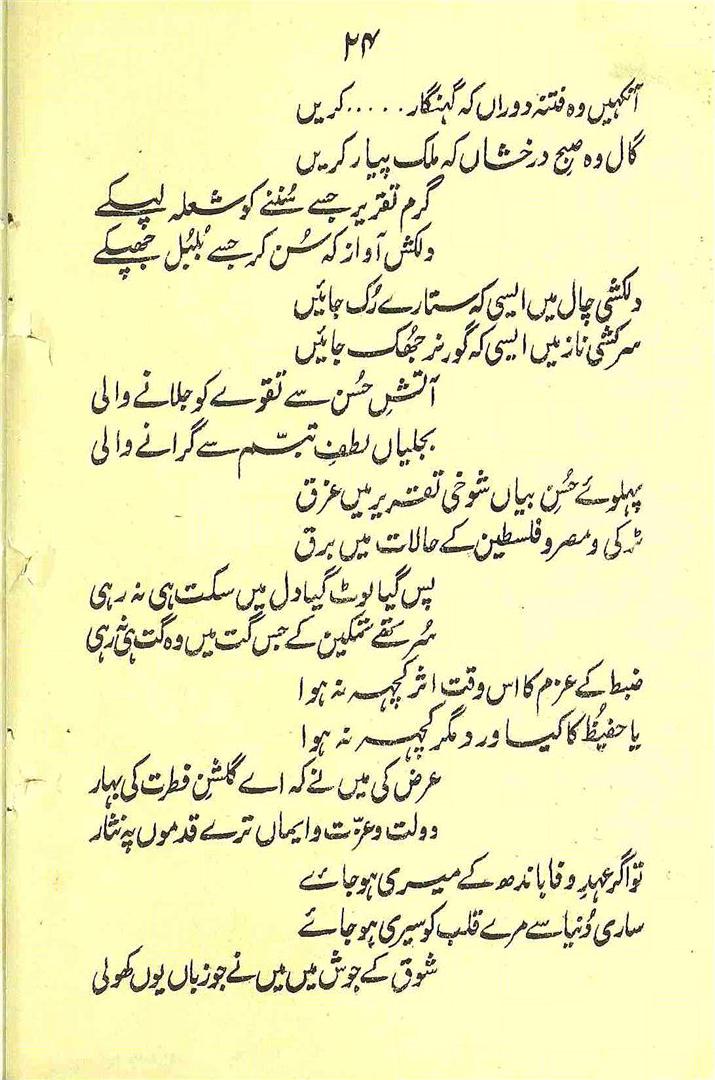 ۲۴
آنکہیں وہ فتنہ دوراں کہ گہنگار ..... کریں
گال وہ صبح درخشاں کہ ملک پیار کریں
گرم تقریر جسے سُننے کو شعلہ لپکے
دلکش آواز کہ سُن کر جسے بُلبُل جھپکے
دلکشی چال میں ایسی کہ ستارے رُک جائیں
سرکشی ناز میں ایسی کہ گورنر جُھک جائیں
آتشِ حُسن سے تقوے کو جلانے والی
بجلیاں لطفِ تبسّم سے گرانے والی
پہلوئے حُسنِ بیاں شوخی تقریر میں غرق
ٹرکی و مصر و فلسطین کے حالات میں برق
پس گیا لوٹ گیا دل میں سکت ہی نہ رہی
سُر تھے تمکین کے جس گت میں وہ گت ہی نہ رہی
ضبط کے عزم کا اس وقت اثر کچہہ نہ ہوا
یا حفیظُ کا کیا ورد مگر کچہہ نہ ہوا
عرض کی میں نے کہ اے گلشنِ فطرت کی بہار
دولت و عزّت و ایماں ترے قدموں پہ نثار
تو اگر عہدِ وفا باندھ کے میری ہو جائے
ساری دُنیا سے مرے قلب کو سیری ہو جائے
شوق کے جوش میں میں نے جو زباں یوں کھولی